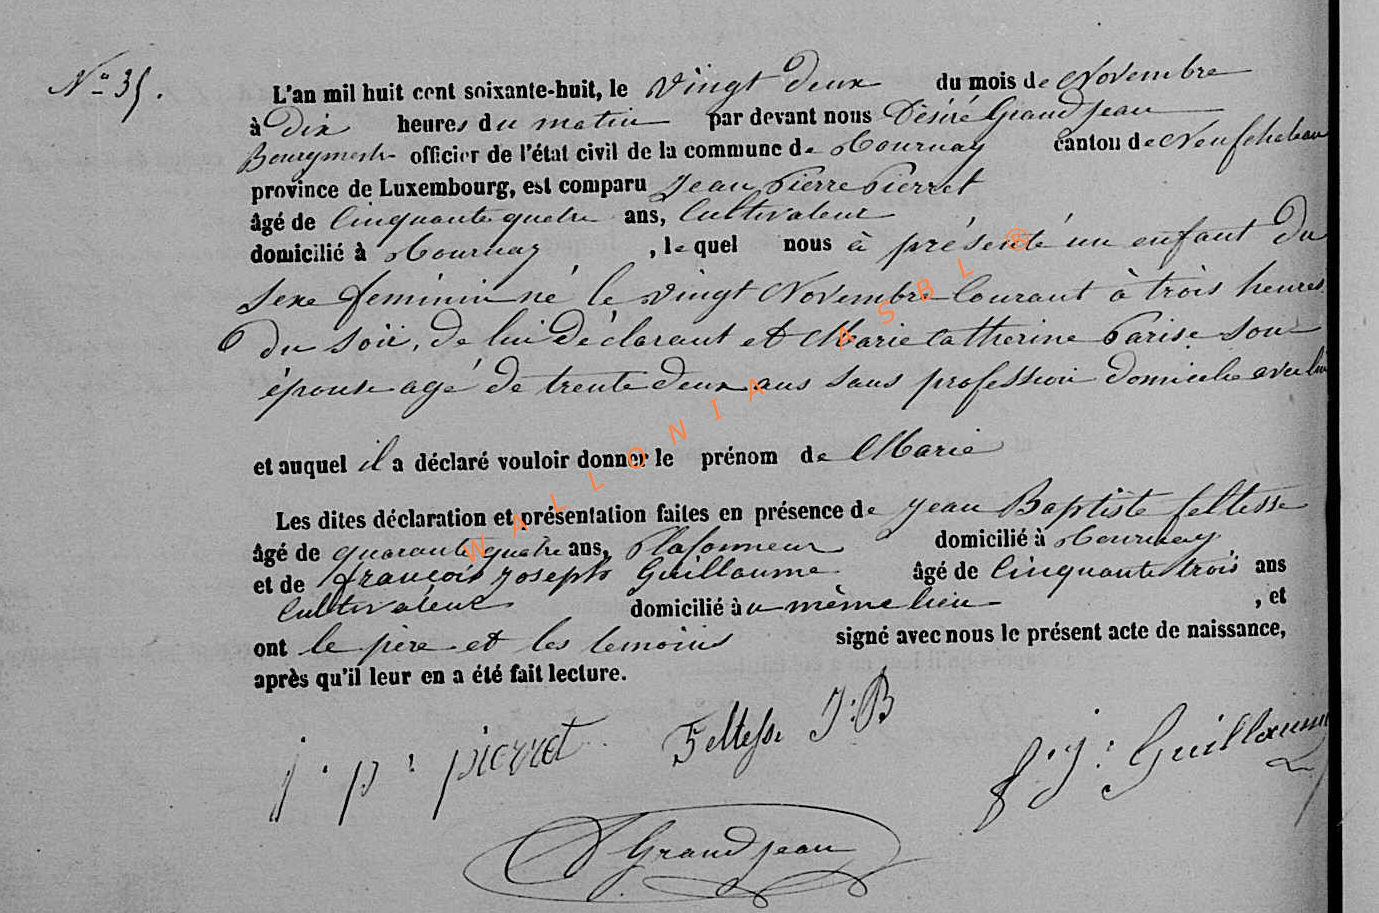 N° 35.
L'an mil huit cent soixante-huit, le vingt deux du mois de Novembre
à dix heures du matin par devant nous Désiré Grandjean
Bourgmestre officier de l'état civil de la commune de Tournay canton de Neufchateau
province de Luxembourg, est comparu Jean Pierre Pierret
âgé de Cinquante quatre ans, Cultivateur
domicilié à Tournay, le quel nous à présenté un enfant du
sexe féminin né le vingt Novembre Courant à trois heures
du soir, de lui déclarant et Marie Catherine Parise son
épouse agé de trente deux ans sans profession domicilié avec lui
et auquel il a déclaré vouloir donner le prénom de Marie
Les dites déclaration et présentation faites en présence de Jean Baptiste feltesse
âgé de quarante quatre ans, Plafonneur domicilié à Tournay
et de françois joseph Guillaume âgé de Cinquante trois ans
Cultivateur domicilié à u même lieu, et
ont le père et les temoins signé avec nous le présent acte de naissance,
après qu'il leur en a été fait lecture.
j. p: pierret Feltesse J:B f: J: Guillaume
D Grandjean
WALLONIA ASBL ®